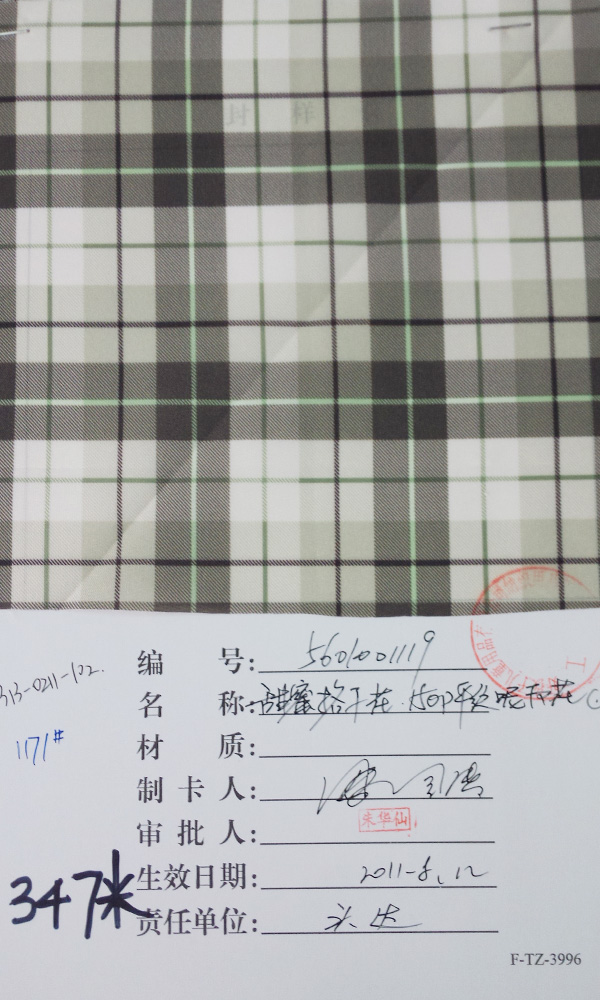 封 样
编 号: 5601001119
名 称: 甜蜜格子
313-0211-102.
1171#
材 质:
制 卡 人:
朱华仙
审 批 人:
生效日期: 2011-8.12
347米
责任单位:
F-TZ-3996